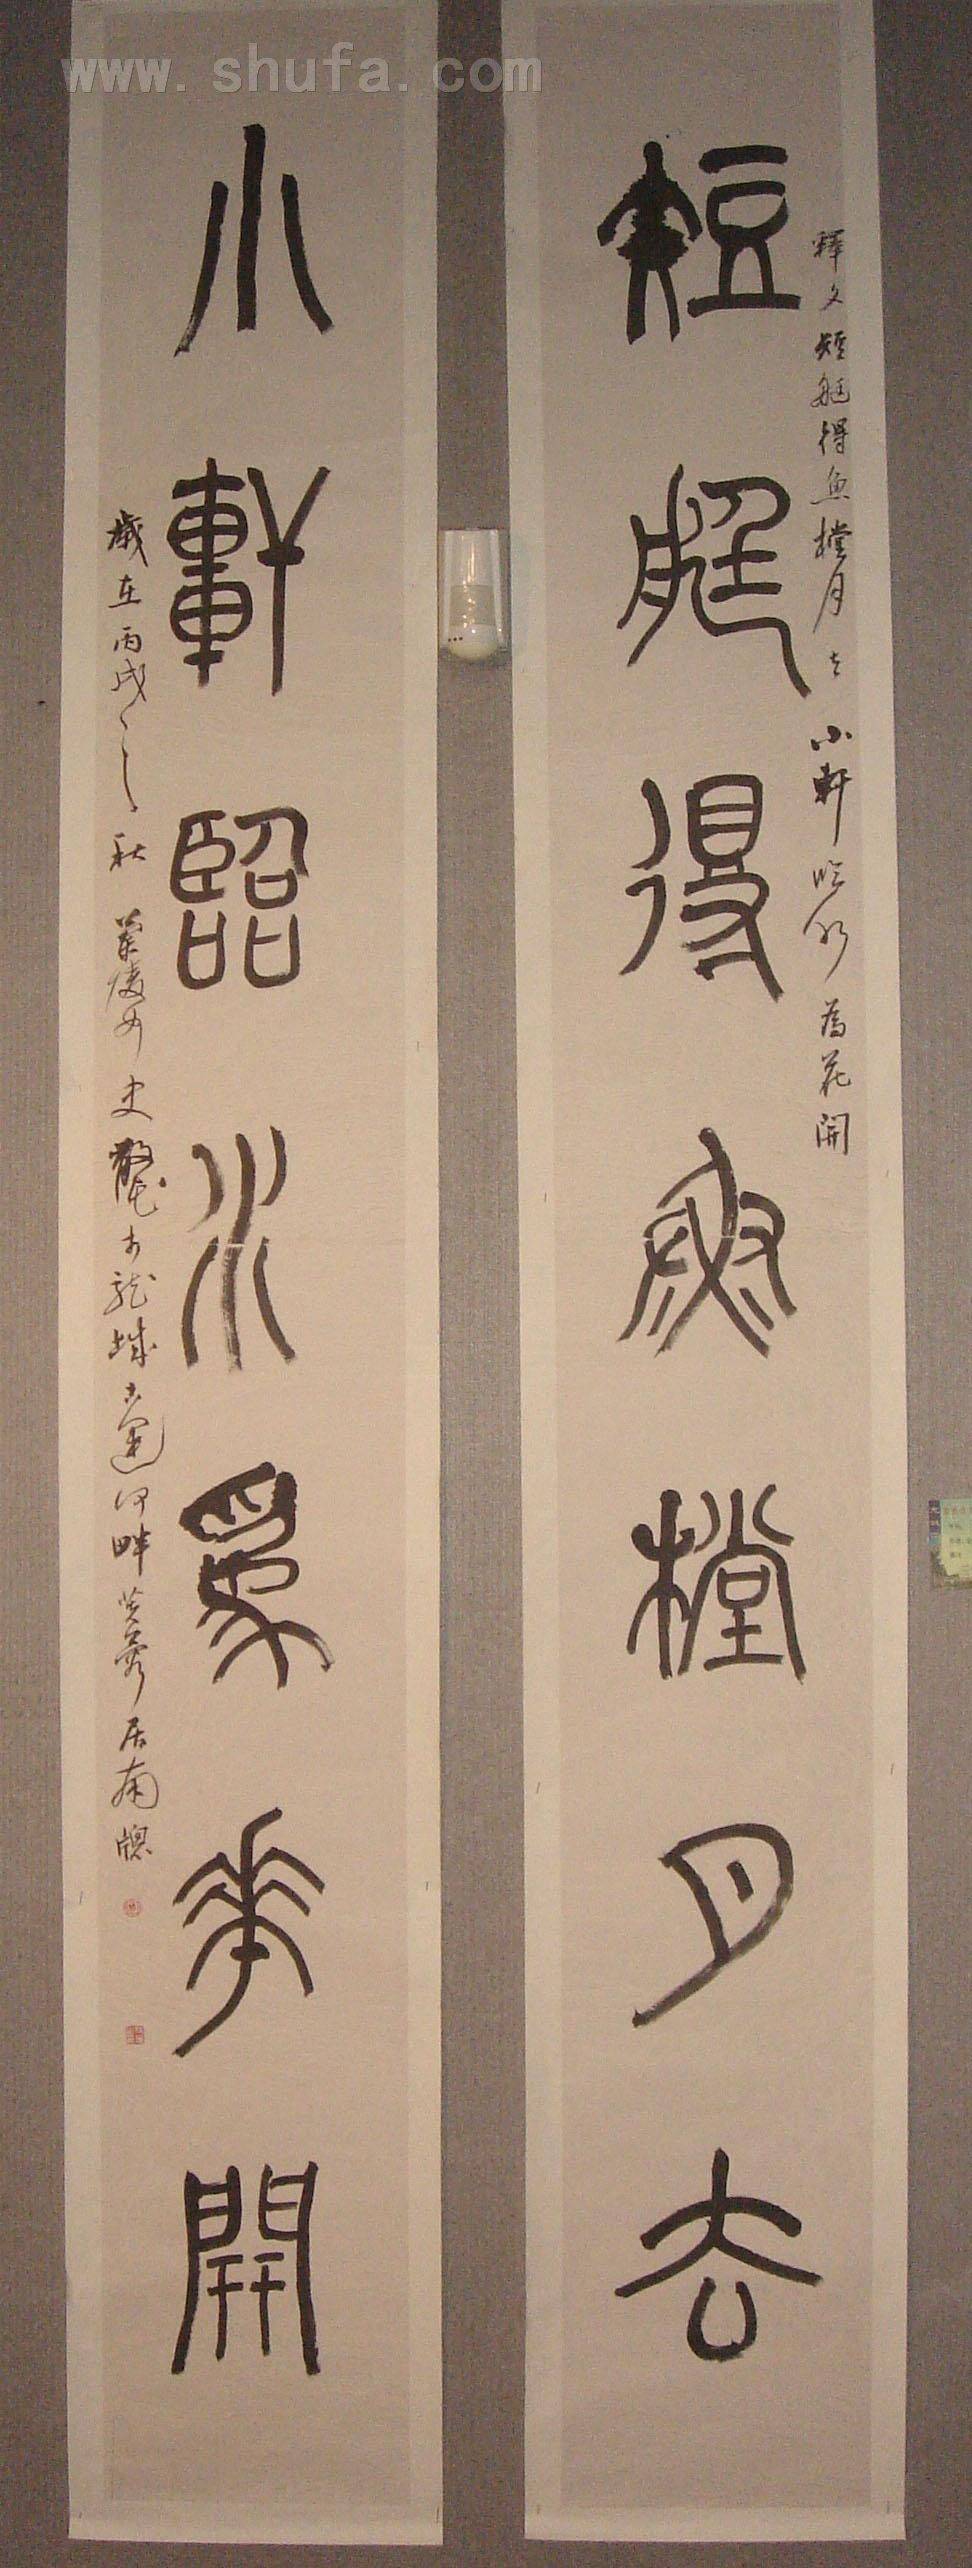 www.shufa.com
短艇得魚撐月去
釋文短艇得魚撐月去小軒臨水為花開
小軒臨水為花開
歲在丙戌之秋蘭陵女史龔書龍城古運河畔芙蓉居南窗